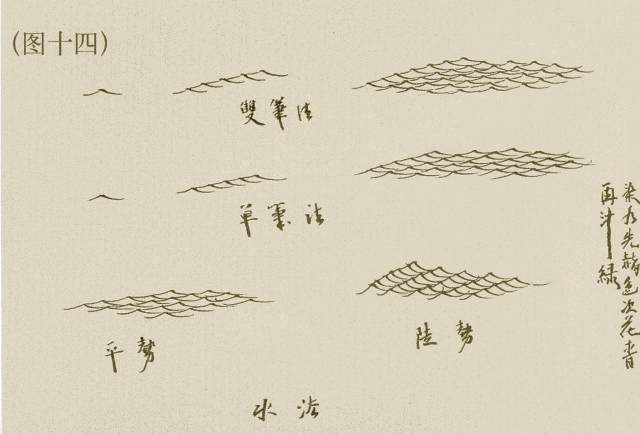 (图十四)
雙筆法
单筆法
染水先赭色次花青
再汁緑
平勢
陡勢
水法